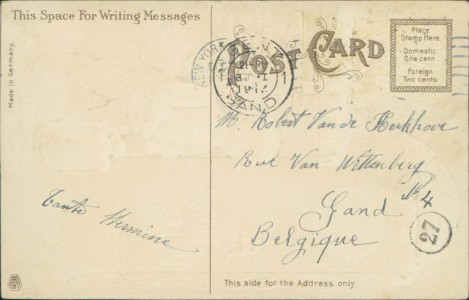 This Space For Writing Messages
POST CARD
Place
Stamp Here
Domestic
One cent
Foreign
Two cents
Made in Germany.
NEW YORK
GAND
M. Robert Van de Kerkhove
Rue Van Wittenberg
Gand
Belgique
27
Tante Hermine
This side for the Address only.